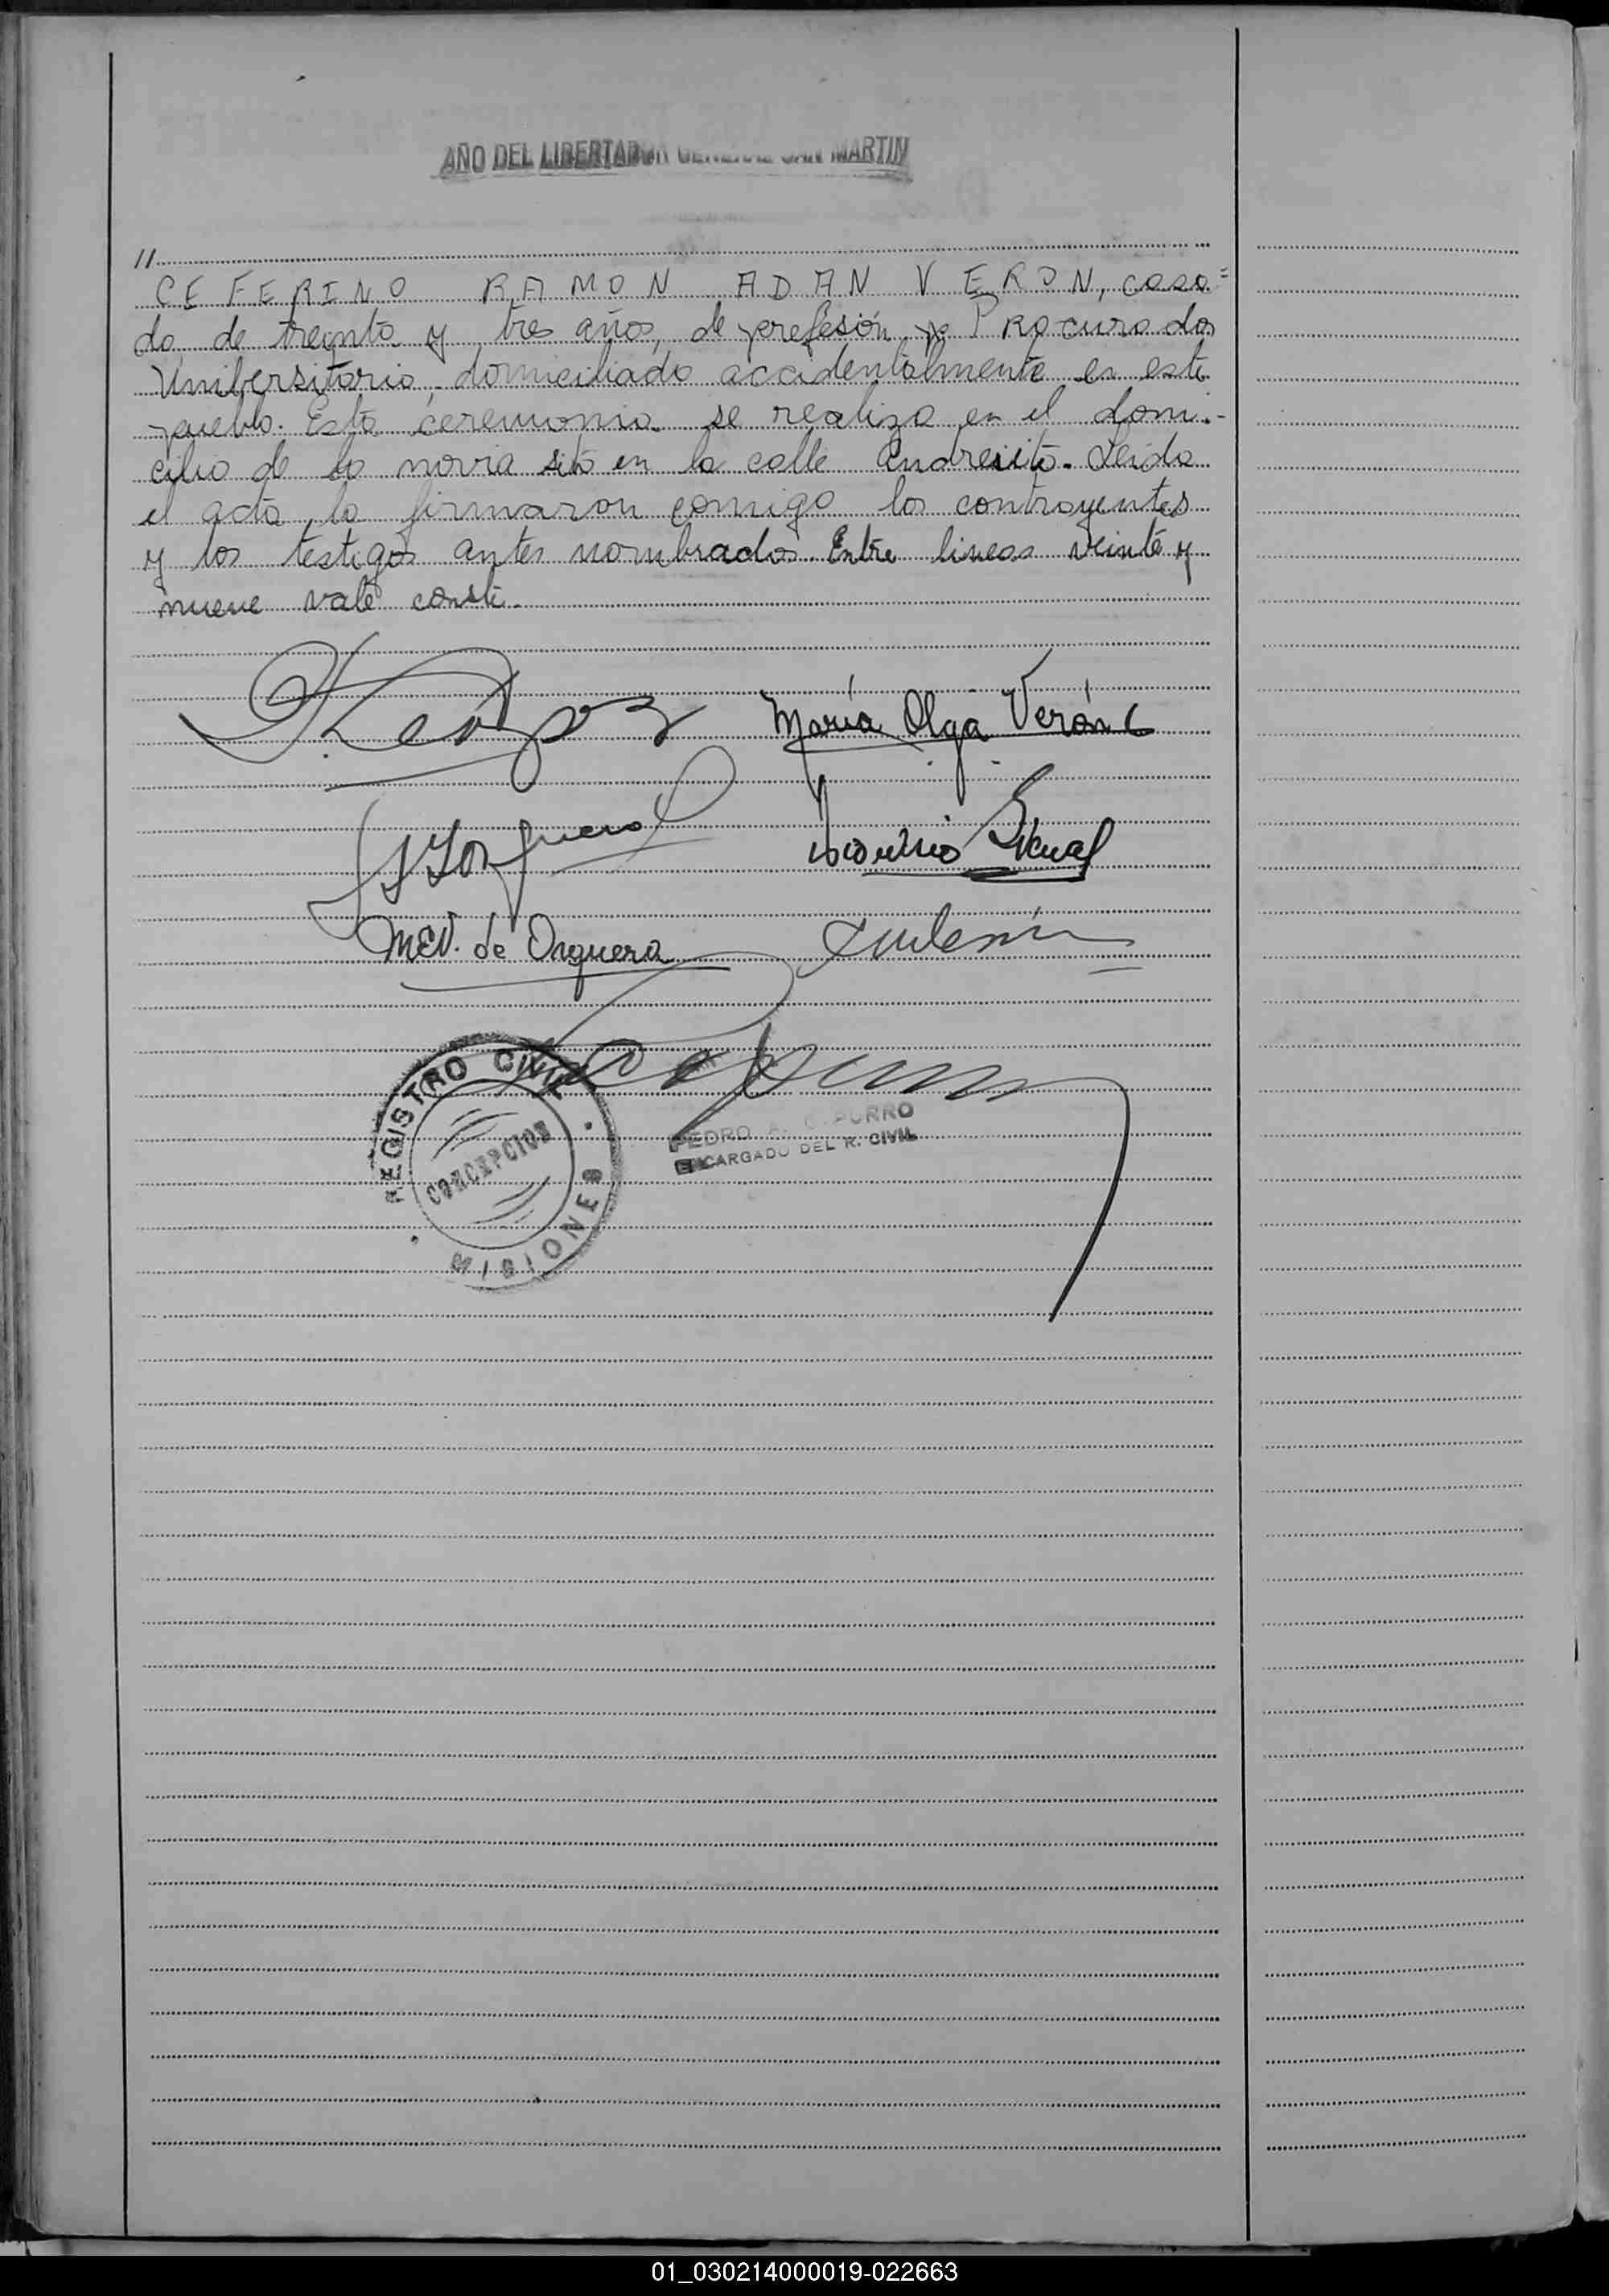 AÑO DEL LIBERTADOR GENERAL SAN MARTIN
//
CEFERINO RAMON ADAN VERON, casa=
do, de treinta y tres años, de prefesión Procurador
Unibersitario, domiciliado accidentalmente en este
pueblo. Esta ceremonia se realiza en el domi-
cilio de la novia sito en la calle Andresito. Leida
el acta, la firmaron comigo los contrayentes
y los testigos antes nombrados. Entre lineas veinte y
nueve vale conste.
María Olga Verón
M.E.V. de Orquera
REGISTRO CIVIL
CONCEPCION
MISIONES
PEDRO A. CAPURRO
ENCARGADO DEL R. CIVIL
01_030214000019-022663